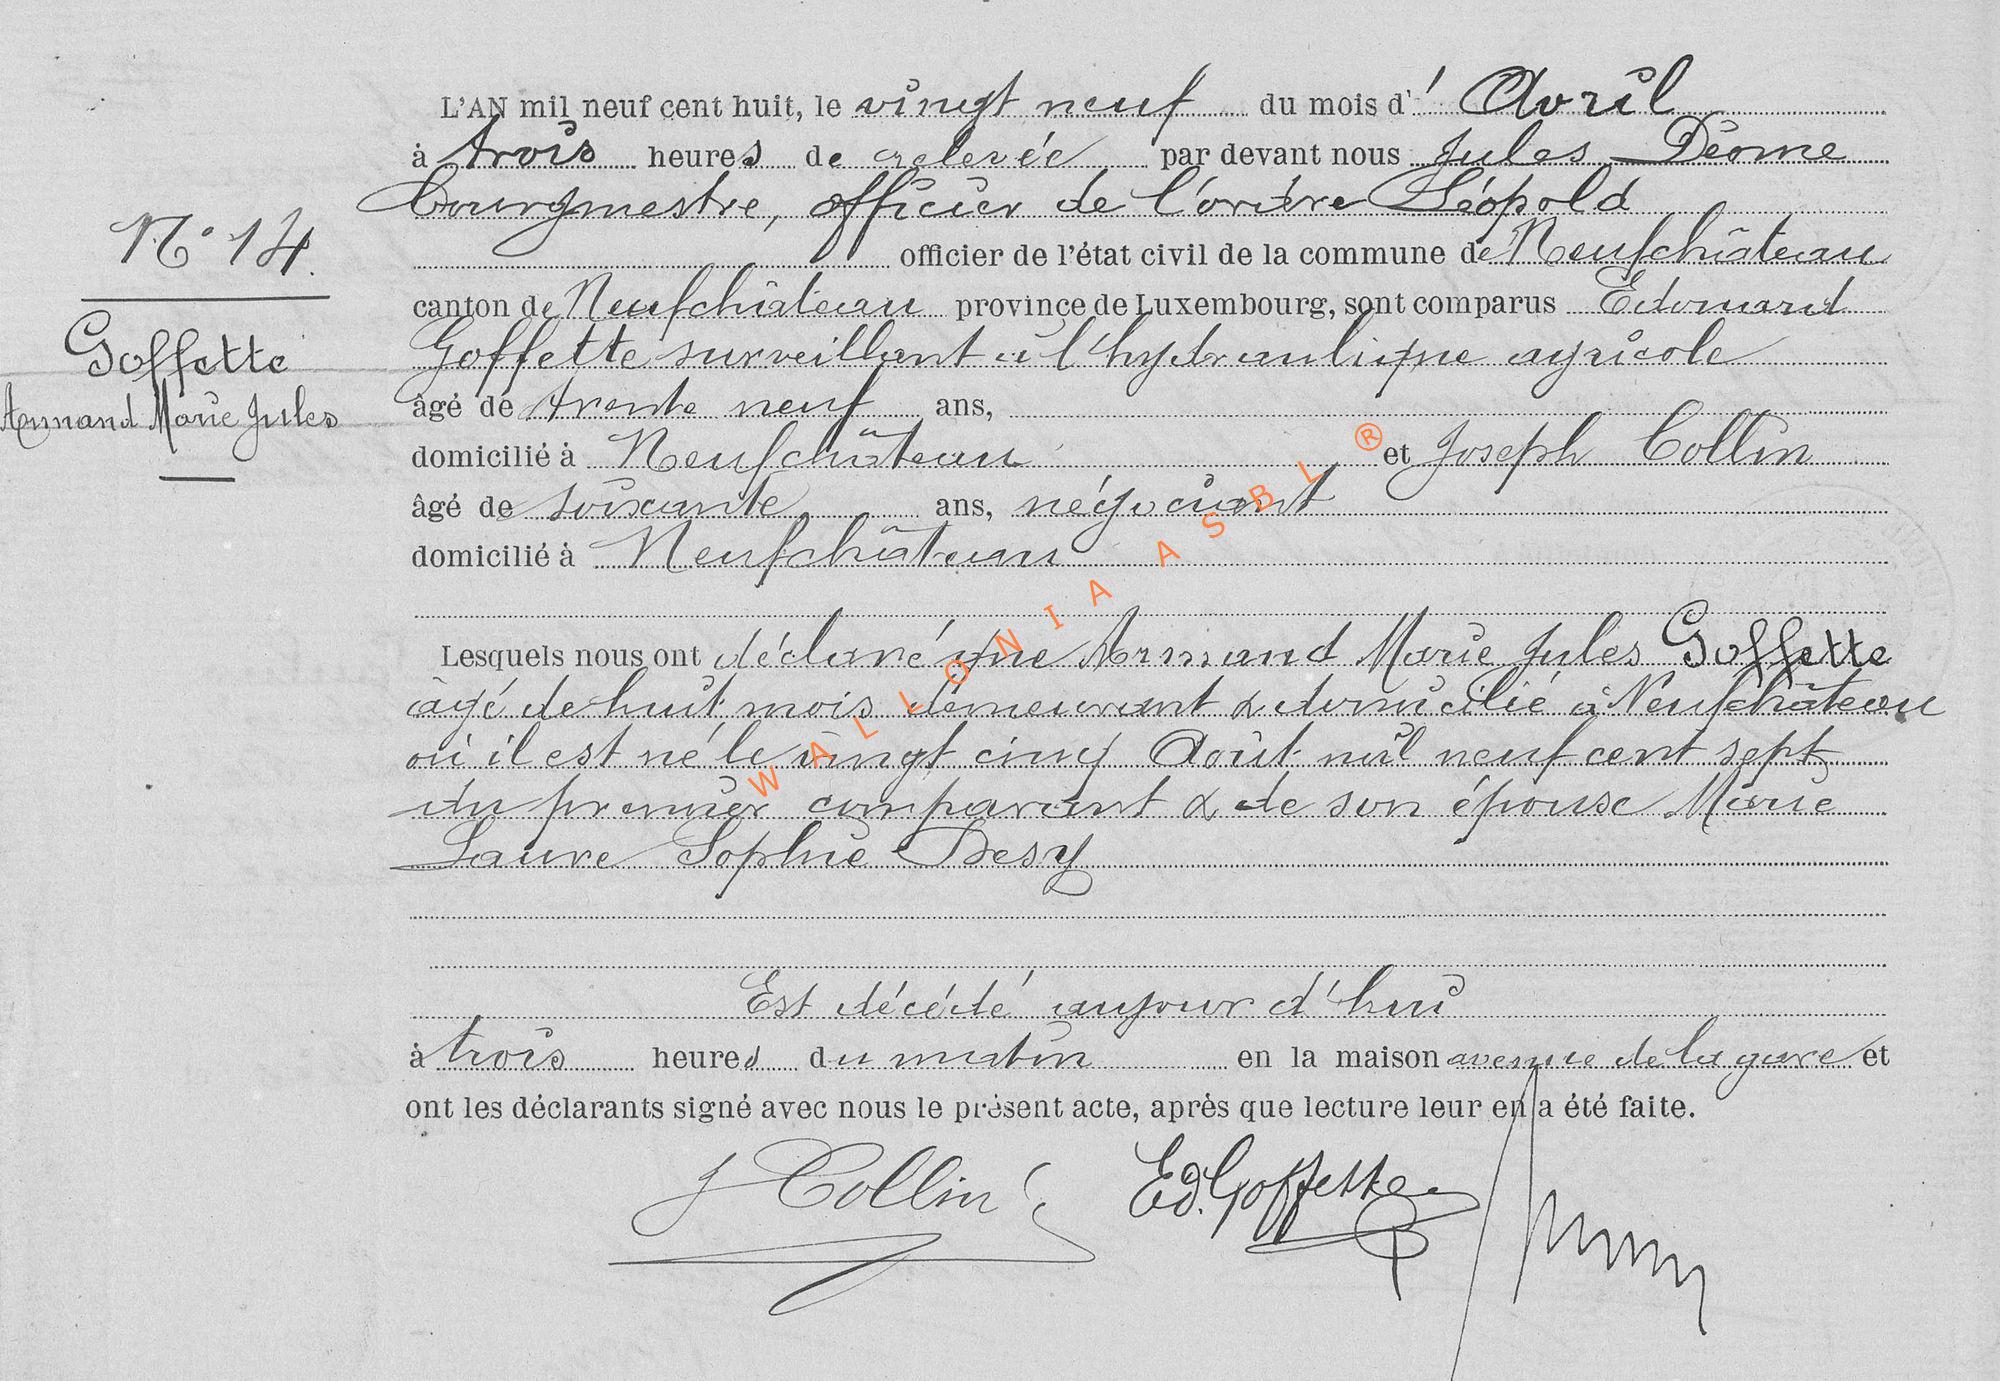 L'AN mil neuf cent huit, le vingt neuf du mois d' Avril
à trois heures de relevée par devant nous Jules Déome
bourgmestre, officier de l'ordre Léopold
N° 14.
officier de l'état civil de la commune de Neufchâteau
canton de Neufchâteau province de Luxembourg, sont comparus Edouard
Goffette
Goffette surveillant à l'hydraulique agricole
Armand Marie Jules
âgé de trente neuf ans,
domicilié à Neufchâteau et Joseph Collin
âgé de soixante ans, négociant
domicilié à Neufchâteau
Lesquels nous ont déclaré que Armand Marie Jules Goffette
âgé de huit mois demeurant & domicilié à Neufchâteau
où il est né le vingt cinq Août mil neuf cent sept
du premier comparant & de son épouse Marie
Laure Sophie Desy
Est décédé aujour d'hui
à trois heures du matin en la maison avenue de la gare et
ont les déclarants signé avec nous le présent acte, après que lecture leur en a été faite.
J Collin Ed. Goffette
WALLONIA ASBL ®